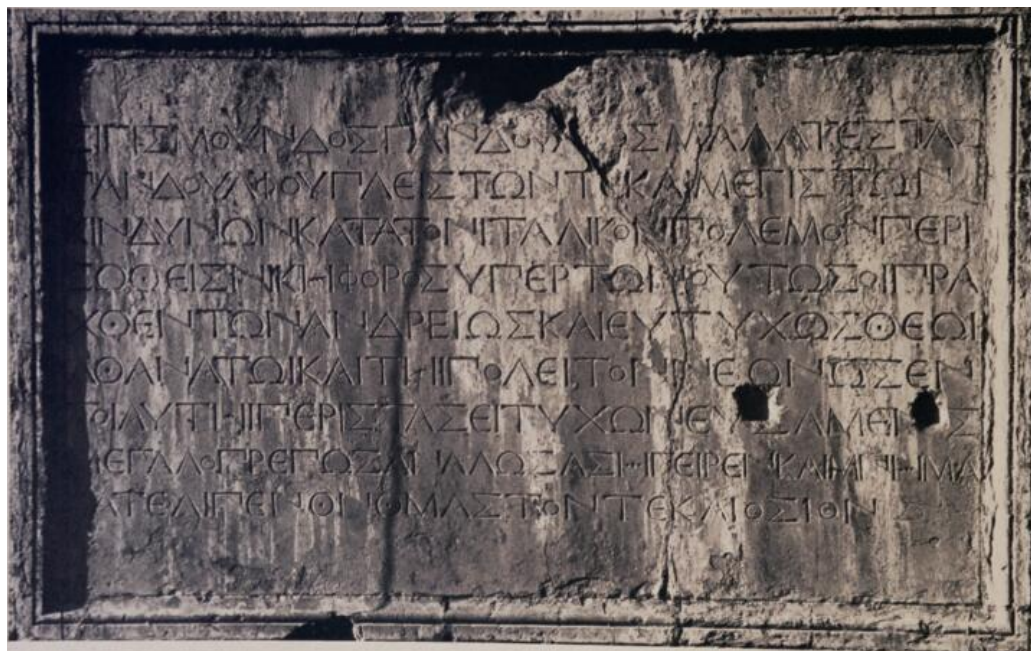 ΣΙΓΙΣΜΟΥΝΔΟΣ ΠΑΝΔΟΥΛΦΟΣ ΜΑΛΑΤΕΣΤΑΣ
ΠΑΝΔΟΥΛΦΟΥ ΠΛΕΙΣΤΩΝ ΤΕ ΚΑΙ ΜΕΓΙΣΤΩΝ
ΚΙΝΔΥΝΩΝ ΚΑΤΑ ΤΟΝ ΙΤΑΛΙΚΟΝ ΠΟΛΕΜΟΝ ΠΕΡΙ
ΣΩΘΕΙΣ ΝΙΚΗΦΟΡΟΣ ΥΠΕΡ ΤΩΝ ΟΥΤΩΣ ΟΙ ΠΡΑ
ΧΘΕΝΤΩΝ ΑΝΔΡΕΙΩΣ ΚΑΙ ΕΥΤΥΧΩΣ ΘΕΩΙ
ΑΘΑΝΑΤΩΙ ΚΑΙ ΤΗΙ ΠΟΛΕΙ ΤΟΝ ΝΕΩΝ ΩΣ ΕΝ
ΤΟΙΑΥΤΗΙ ΠΕΡΙΣΤΑΣΕΙ ΤΥΧΩΝ ΕΥΞΑΜΕΝΟΣ
ΜΕΓΑΛΟΠΡΕΠΩΣ ΑΝΑΛΩΣΑΣ ΗΓΕΙΡΕΝ ΚΑΙ ΜΝΗΜΑ
ΚΑΤΕΛΙΠΕΝ ΟΝΟΜΑΣΤΟΝ ΤΕ ΚΑΙ ΟΣΙΟΝ